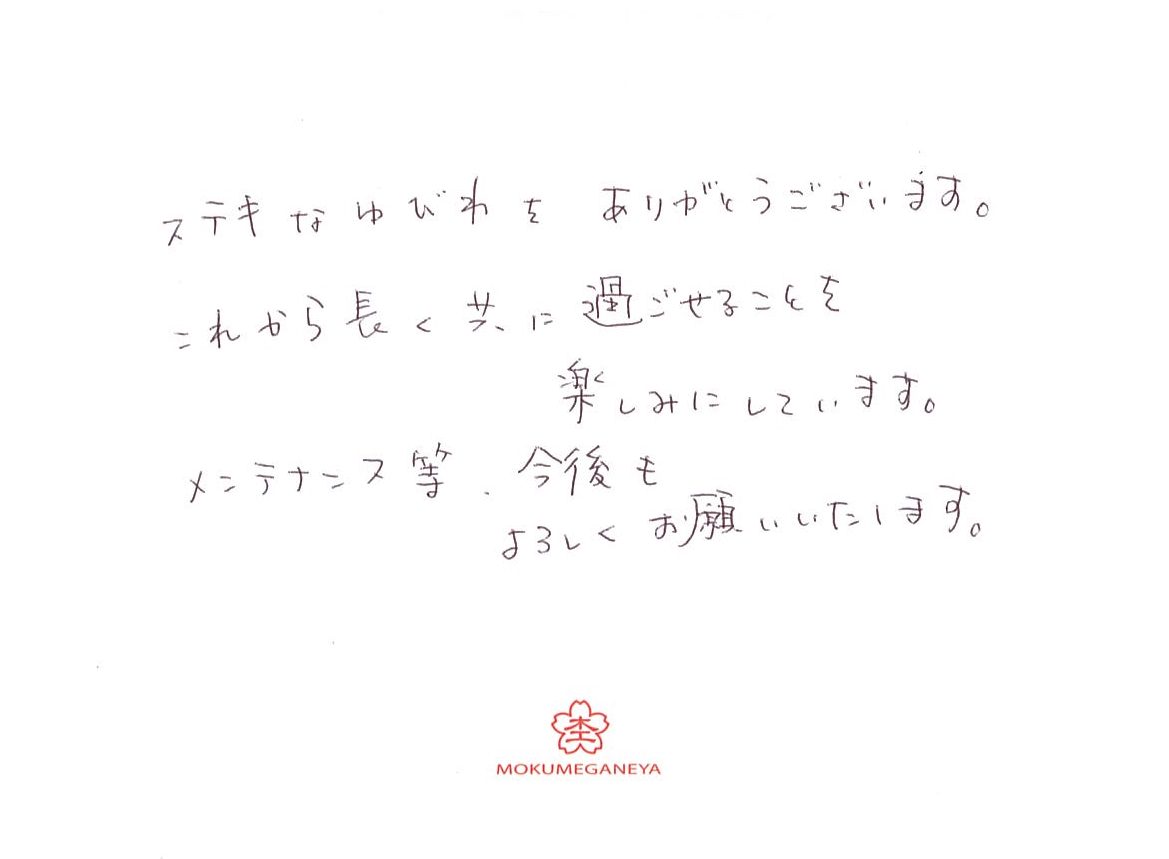 ステキなゆびわを ありがとうございます。
これから長く共に過ごせることを
楽しみにしています。
メンテナンス等、今後も
よろしくお願いいたします。
MOKUMEGANEYA